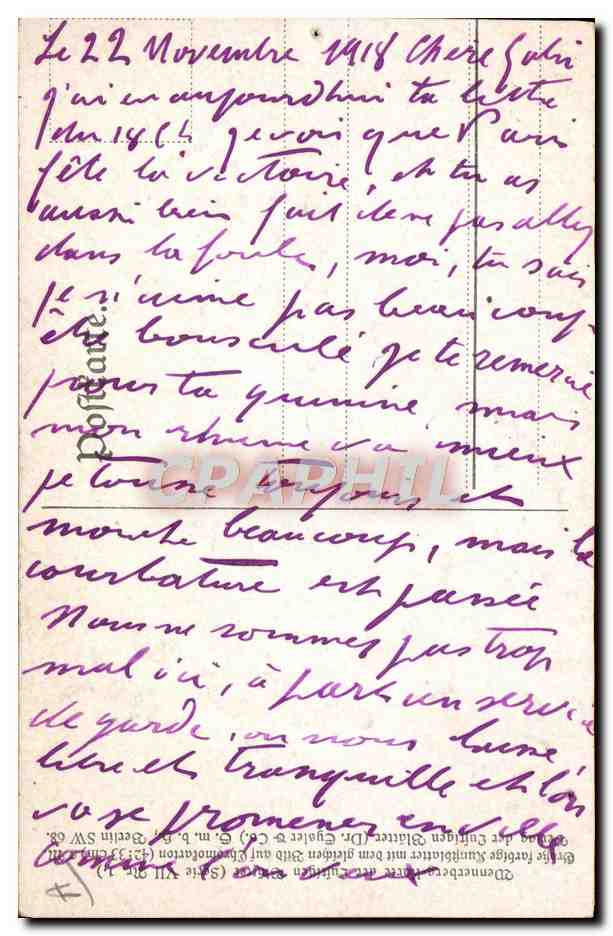 Le 22 Novembre 1918 Chere Gaby
j'ai eu aujourdhui ta lettre
du 18 je vois que Paris
fête la victoire, et tu as
aussi bien fait de ne pas aller
dans la foule, moi, tu sais
je n'aime pas beaucoup
être bousculé je te remercie
pour ta quinine, mais
mon rhume va mieux
je tousse toujours et
mouche beaucoup, mais la
courbature est passée
Nous ne sommes pas trop
mal ici, à part un service
de garde, on nous laisse
libre et tranquille et l'on
va se promener en ville
comme
Postkarte.
CPAPHIL
Wennerberg-Karte der Lustigen Blätter (Serie VII Nr.
Große farbige Kunstblätter mit dem gleichen Bild auf Chromokarton (42:33
Verlag der Lustigen Blätter (Dr. Eysler & Co.) G. m. b. H. Berlin SW 68.